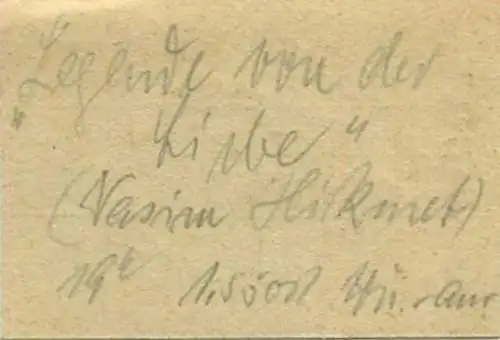 „Legende von der
Liebe"
(Nasim Hikmet)
19h